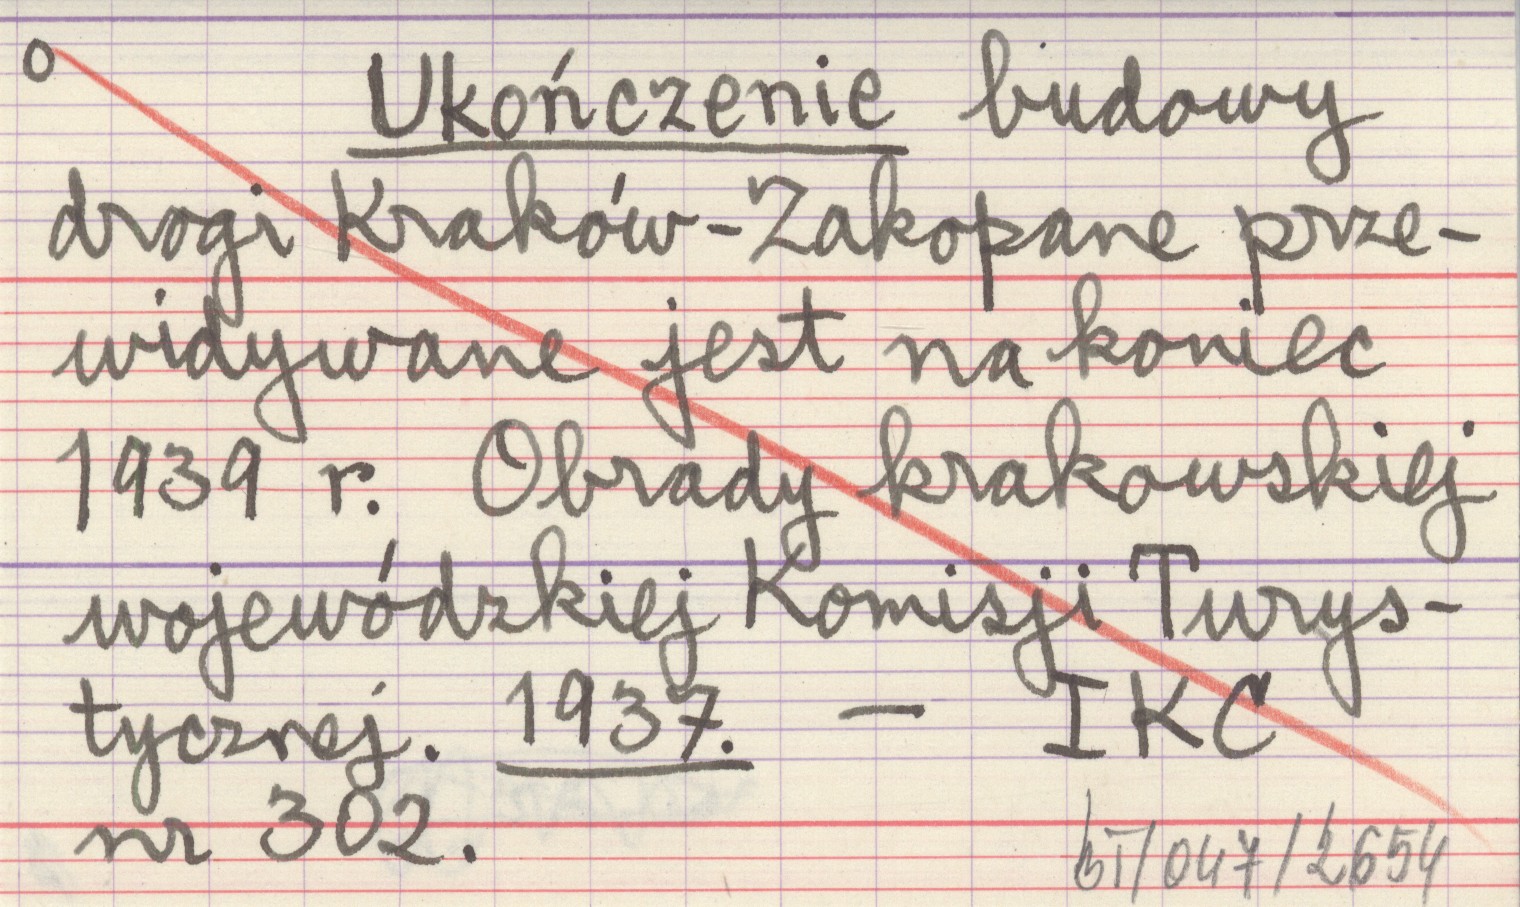 o
Ukończenie budowy
drogi Kraków-Zakopane prze-
widywane jest na koniec
1939 r. Obrady krakowskiej
wojewódzkiej Komisji Turys-
tycznej. 1937. — IKC
nr 302.
bT/047/2654